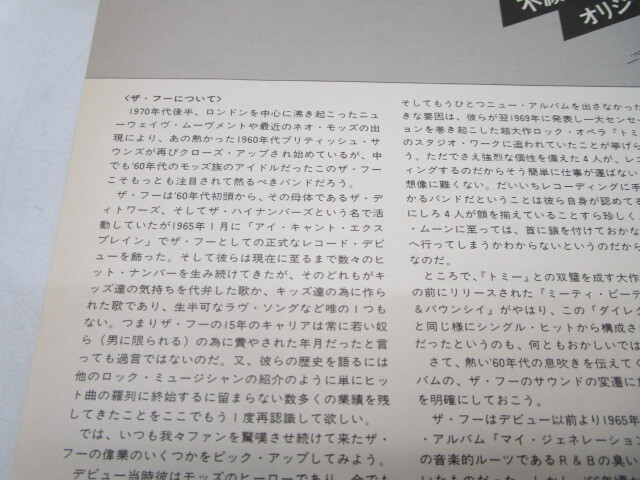 オリジ
〈ザ・フーについて〉
1970年代後半、ロンドンを中心に沸き起こったニュ
ーウェイヴ・ムーヴメントや最近のネオ・モッズの出
現により、あの熱かった1960年代ブリティッシュ・サ
ウンズが再びクローズ・アップされ始めているが、中
でも'60年代のモッズ族のアイドルだったこのザ・フー
こそもっとも注目されて然るべきバンドだろう。
ザ・フーは'60年代初頭から、その母体であるザ・デ
ィトワーズ、そしてザ・ハイナンバーズという名で活
動していたが1965年1月に「アイ・キャント・エクス
プレイン」でザ・フーとしての正式なレコード・デビ
ューを飾った。そして彼らは現在に至るまで数々のヒ
ット・ナンバーを生み続けてきたが、そのどれもがキ
ッズ達の気持ちを代弁した歌か、キッズ達の為に作ら
れた歌であり、生半可なラヴ・ソングなど唯の1つも
ない。つまりザ・フーの15年のキャリアは常に若い奴
ら（男に限られる）の為に費やされた年月だったと言
っても過言ではないのだ。又、彼らの歴史を語るには
他のロック・ミュージシャンの紹介のように単にヒッ
ト曲の羅列に終始するに留まらない数多くの業績を残
してきたことをここでもう1度再認識して欲しい。
では、いつも我々ファンを驚嘆させ続けて来たザ・
フーの偉業のいくつかをピック・アップしてみよう。
デビュー当時彼はモッズのヒーローであり、今でも
そしてもうひとつニュー・アルバムを出さなかった
きな要因は、彼らが翌1969年に発表し一大センセー
ョンを巻き起こした超大作ロック・オペラ『トミ
のスタジオ・ワークに追われていたことが挙げら
う。ただでさえ強烈な個性を備えた4人が、レコ
ィングするのだからそう簡単に仕事が運ばない
想像に難くない。だいいちレコーディングに手
かるバンドだということは彼ら自身が認めてる
にしろ4人が顔を揃えていることすら珍しく
・ムーンに至っては、首に鎖を付けておかな
へ行ってしまうかわからないというのだから
なのだ。
ところで、『トミー』との双璧を成す大作
の前にリリースされた『ミーティ・ビーテ
&バウンシィ』がやはり、この『ダイレク
と同じ様にシングル・ヒットから構成さ
だったというのも、何ともおかしいでは
さて、熱い'60年代の息吹きを伝えてく
バムの、ザ・フーのサウンドの変遷に
を明確にしておこう。
ザ・フーはデビュー以前より1965年
・アルバム『マイ・ジェネレーション
の音楽的ルーツであるR&Bの臭い
いたものだった。しかし、'66年頃か